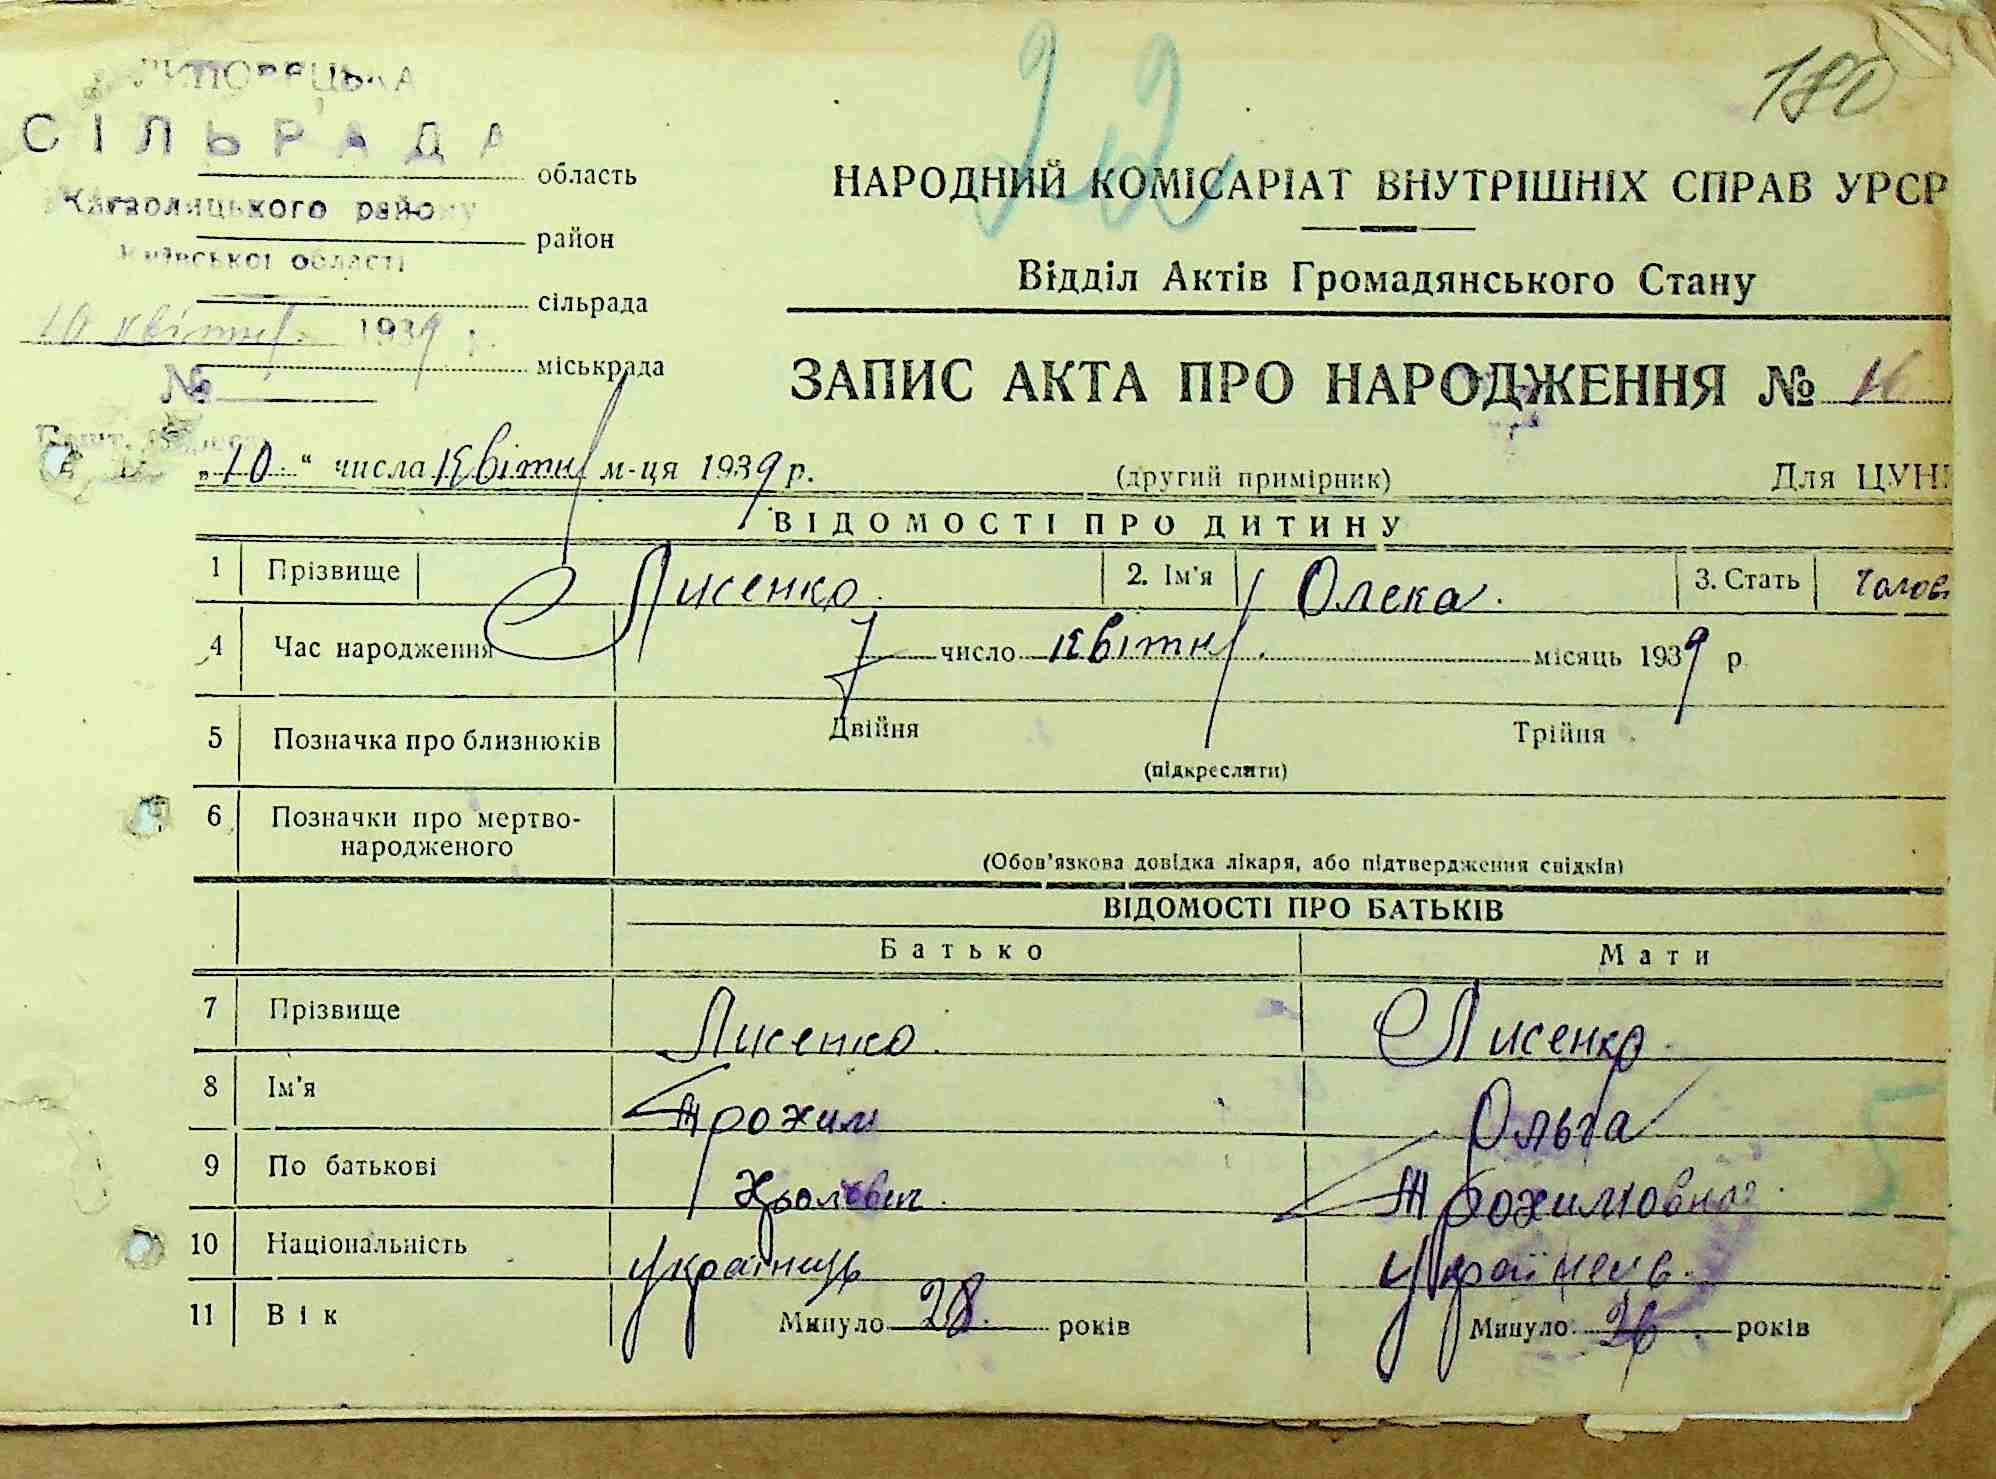 180
22
СІЛЬРАДА
область
Кагарлицького району
район
Київської області
сільрада
10 квітня 1939 р.
міськрада
№
НАРОДНИЙ КОМІСАРІАТ ВНУТРІШНІХ СПРАВ УРСР
Відділ Актів Громадянського Стану
ЗАПИС АКТА ПРО НАРОДЖЕННЯ №
„10“ числа квітня м-ця 1939 р.
(другий примірник)
Для ЦУН
ВІДОМОСТІ ПРО ДИТИНУ
1 Прізвище Лисенко. 2. Ім'я Олека. 3. Стать Чолов
4 Час народження 7 число квітня. місяць 1939 р.
5 Позначка про близнюків Двійня Трійня
(підкреслити)
6 Позначки про мертво-
народженого
(Обов'язкова довідка лікаря, або підтвердження свідків)
ВІДОМОСТІ ПРО БАТЬКІВ
Батько Мати
7 Прізвище Лисенко. Лисенко.
8 Ім'я Трохим Ольга
9 По батькові Трохимовна.
10 Національність українець українець.
11 Вік Минуло 28. років Минуло 26. років
5